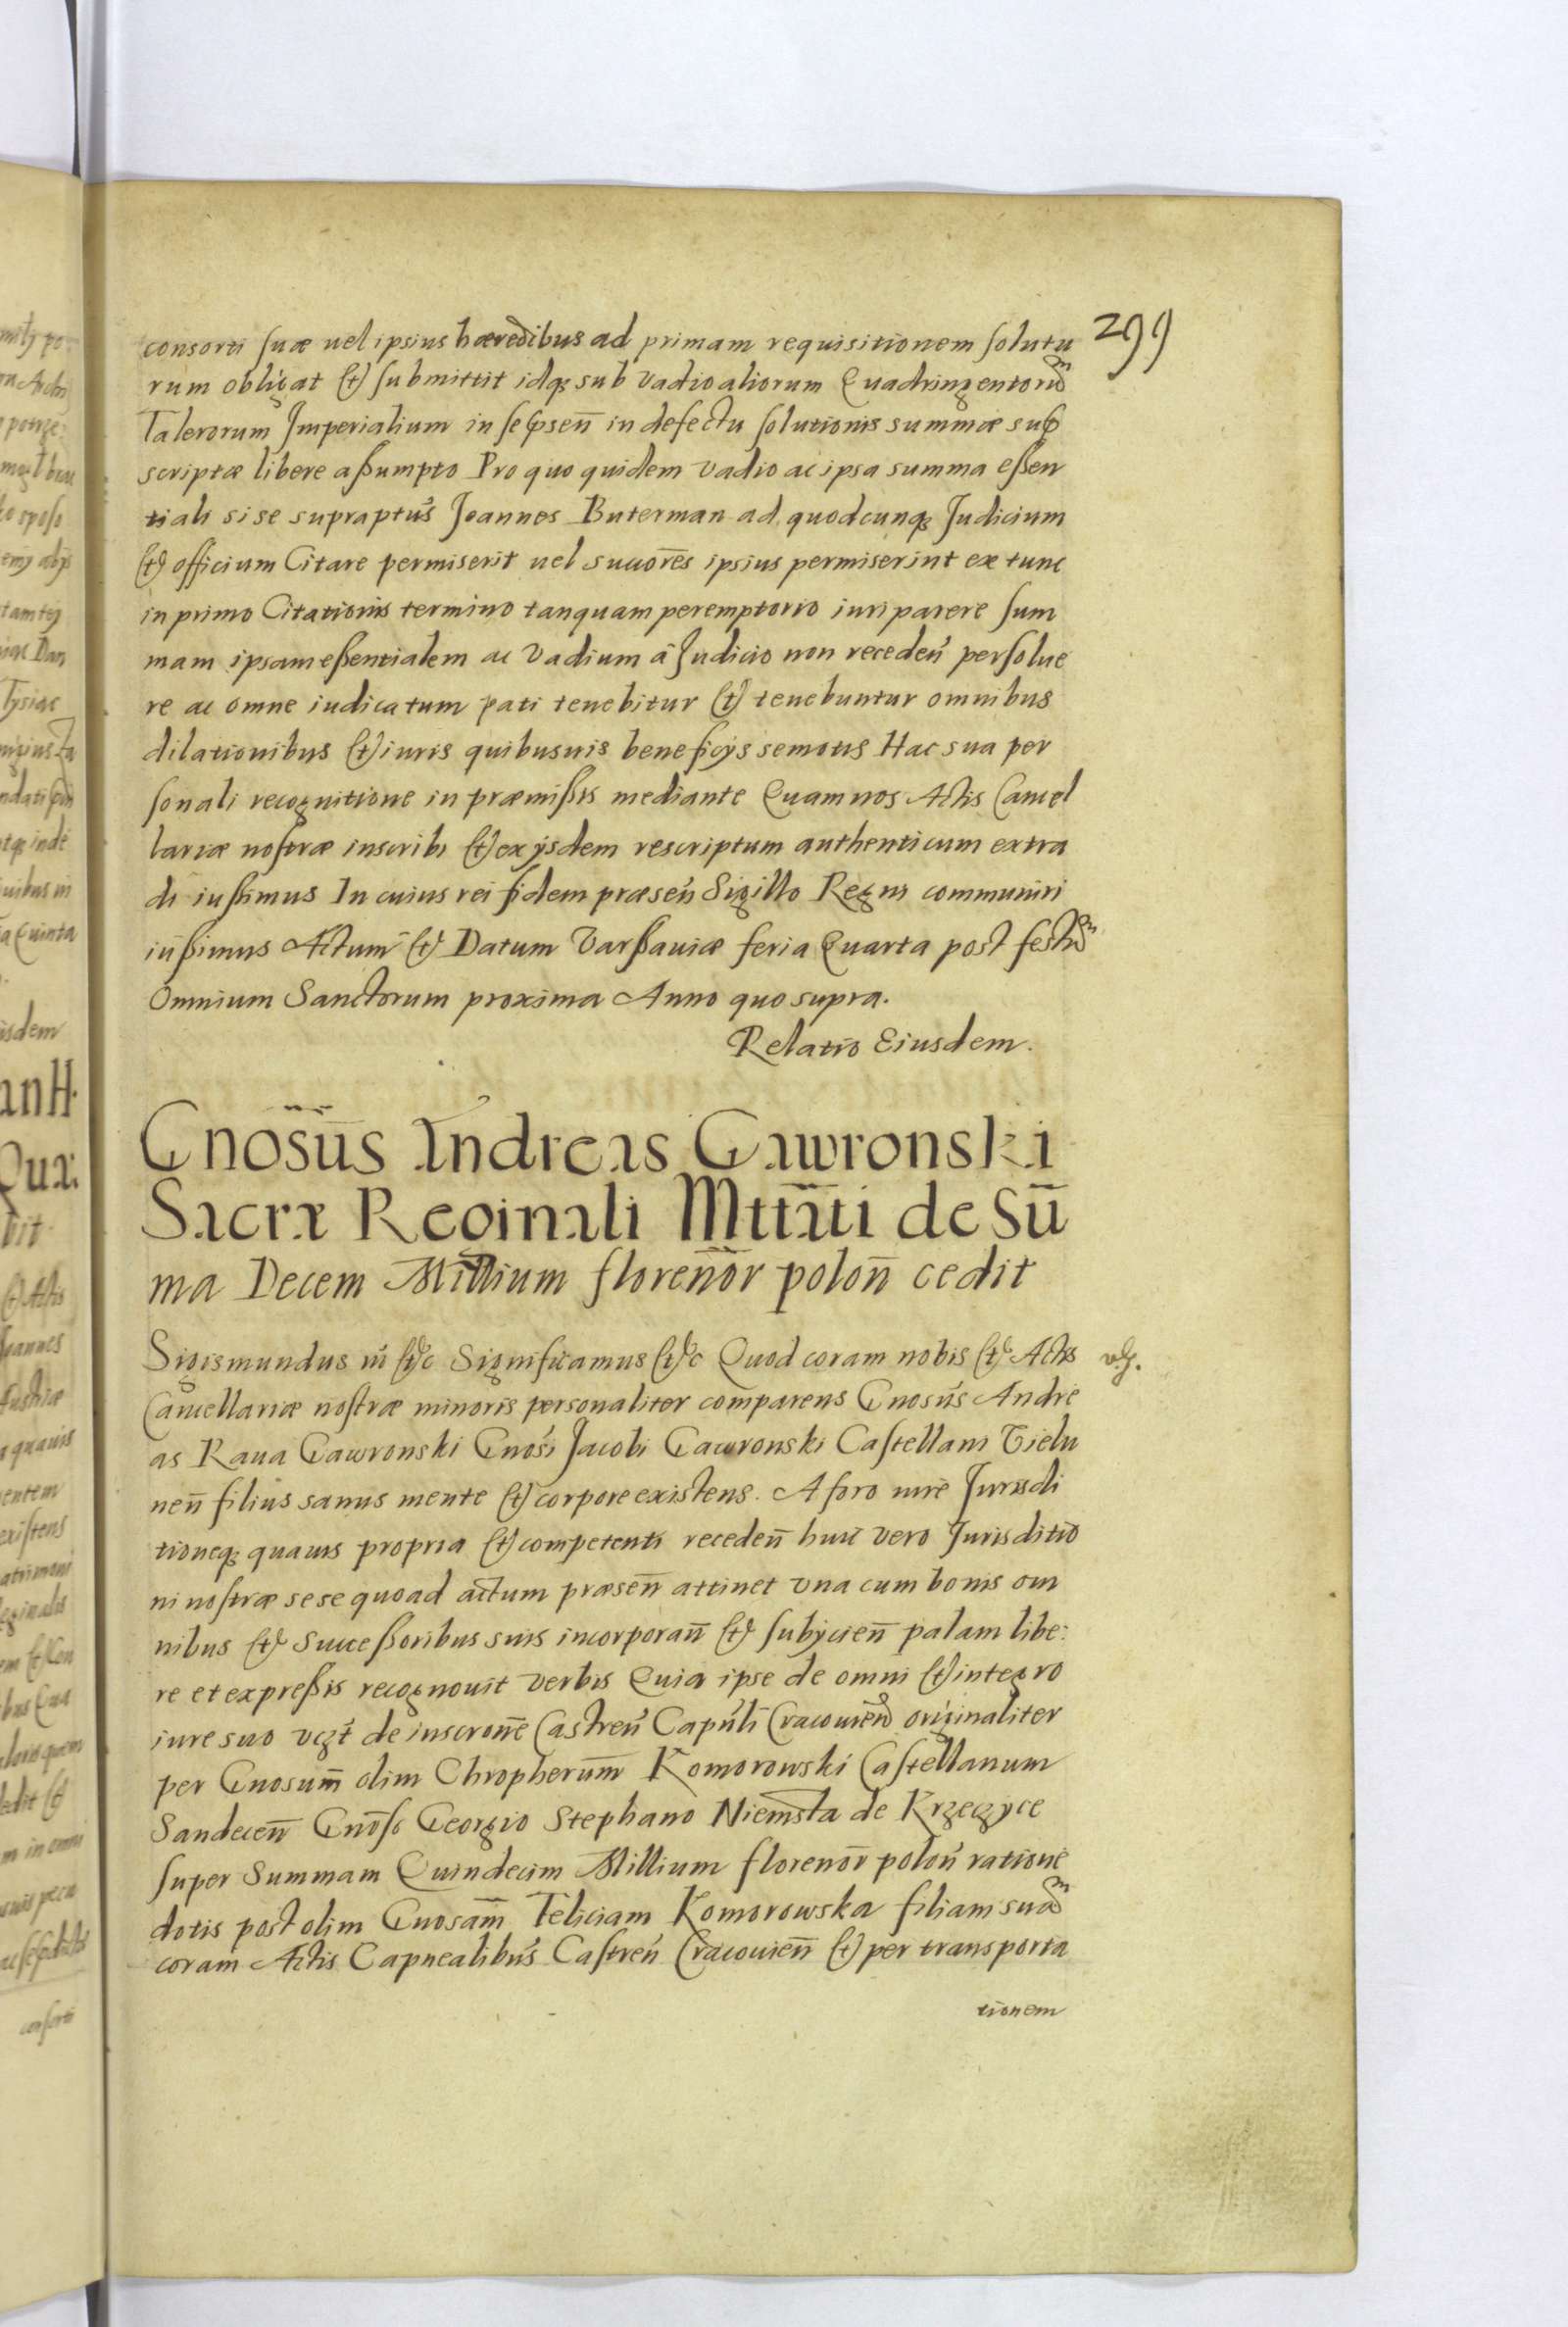 299
consorti suæ uel ipsius hæredibus ad primam requisitionem solutu
rum obligat et submittit idq; sub vadio aliorum Quadringentorũ
Talerorum Imperialium in se ipsen̄ in defectu solutionis summæ sup
scriptæ libere assumpto Pro quo quidem vadio ac ipsa summa essen
tiali si se supraptus Joannes Buterman ad quodcunq; Judicium
et officium Citare permiserit uel succores̄ ipsius permiserint ex tunc
in primo Citationis termino tanquam peremptorio iuri parere sum
mam ipsam essentialem ac vadium à Judicio non receden̄ persolue
re ac omne iudicatum pati tenebitur et tenebuntur omnibus
dilationibus et iuris quibusuis beneficijs semotis Hac sua per
sonali recognitione in præmissis mediante Quam nos Actis Cancel
lariæ nostræ inscribi et ex ijsdem rescriptum authenticum extra
di iussimus In cuius rei fidem præsen̄ Sigillo Regni communiri
iussimus Actum et Datum Varssauiæ feria Quarta post festũ
Omnium Sanctorum proxima Anno quo supra.
Relatio Eiusdem.
Gnosūs Andreas Gawronski
Sacræ Reginali Mttāti de Sū
ma Decem Millium florenōr polon̄ cedit
Sigismundus iii etc Significamus etc Quod coram nobis et Actis
Cancellariæ nostræ minoris personaliter comparens Gnosūs Andre
as Raua Gawronski Gnosi Jacobi Gawronski Castellani Vielu
nen̄ filius sanus mente et corpore existens. A foro iure Jurisdi
tioneq; quauis propria et competenti receden̄ huic vero Jurisditio
ni nostræ sese quoad actum præsen̄ attinet vna cum bonis om
nibus et Successoribus suis incorporan̄ et subijcien̄ palam libe:
re et expressis recognouit verbis Quia ipse de omni et integro
iure suo vczt de inscrōne Castren̄ Capnli Cracouien̄ originaliter
per Gnosum̄ olim Chropherum̄ Komorowski Castellanum
Sandecen̄ Gnōso Georgio Stephano Niemsta de Krzeczyce
super Summam Quindecim Millium florenōr polon̄ ratione
dotis post olim Gnosam̄ Feliciam Komorowska filiam suã
coram Actis Capnealibus Castren̄ Cracouien̄ et per transporta
tionem